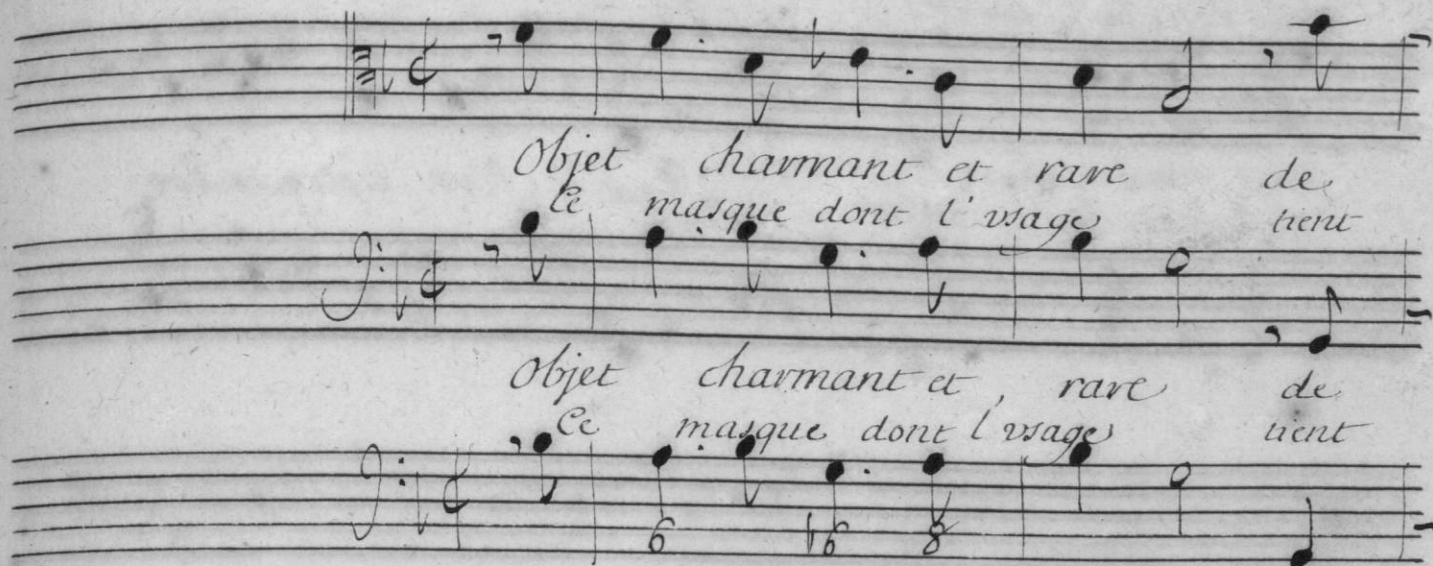 Objet charmant et rare de
Ce masque dont l'vsage tient
Objet charmant et rare de
Ce masque dont l'vsage tient
6 ♭6 8